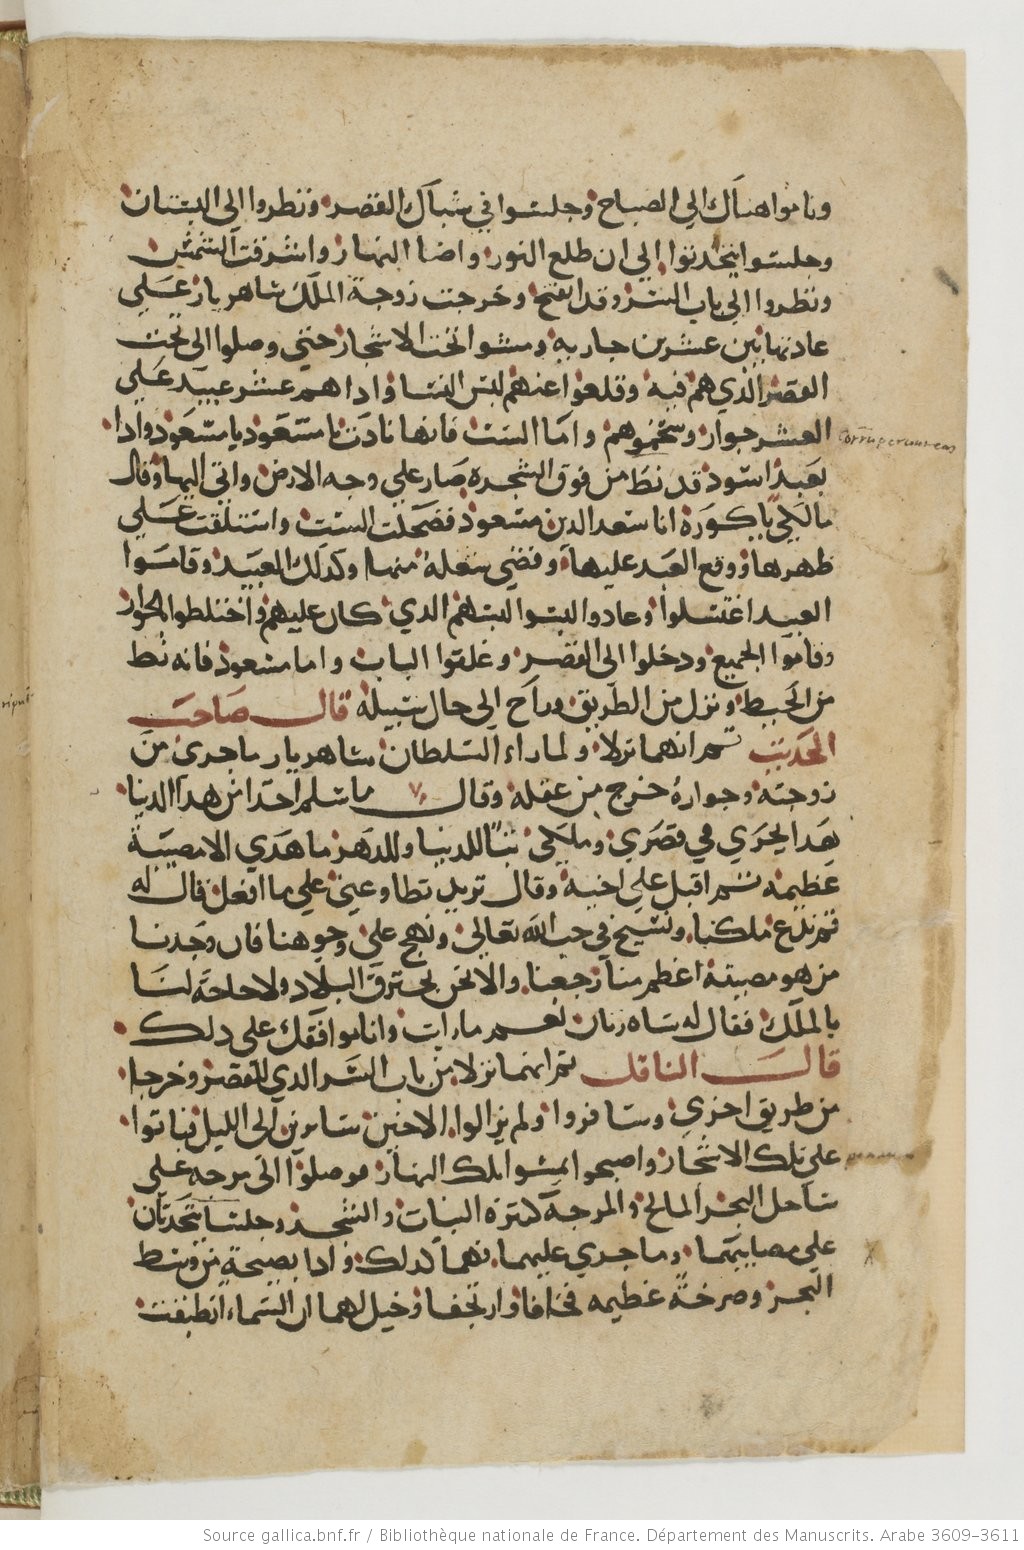 وناموا هناك الي الصباح وجلسوا في شباك القصر ونظروا الى البستان
وجلسوا يتحدثوا الي ان طلع النور واضا النهار واشرقت الشمس
ونظروا الي باب السر وقد انفتح وخرجت زوجة الملك شاهريار علي
عادتها بين عشرين جاريه ومشوا تحت الاشجار حتي وصلوا الى تحت
القصر الذي هم فيه وقلعوا عنهم لبس النسا واذا هم عشر عبيد علي
العشر جوار وسخموهم واما الست فانها نادت يا مسعود يا مسعود واذا
بعبد اسود قد نط من فوق الشجره صار علي وجه الارض واتى اليها وقال
مالكي يا انا سعد الدين مسعود فضحكت الست واستلقت علي
ظهرها ووقع العبد عليها وقضي شغله منها وكذلك العبيد وقاموا
العبيد اغتسلوا وعادوا لبسوا لبسهم الدي كان عليهم واختلطوا بالجوار
وقاموا الجميع ودخلوا الى القصر وغلقوا الباب واما مسعود فانه نط
من الحيط ونزل من الطريق وراح الي حال سبيله قال صاحب
الحديث ثم انهما نزلا ولما راء السلطان شاهريار ما جرى من
زوجته وجواره خرج من عقله وقال ما سلم احدا من هدا الدنيا
هدا يجري في قصري وملكي تبا للدنيا وللدهر ما هدي الا مصيبة
عظيمه ثم اقبل علي اخيه وقال تريد تطاوعني علي ما افعل قال له
نعم ندع ملكنا ونسيح في حب الله تعالي ونهج على وجوهنا فان وجدنا
من هو مصيبته اعظم منا رجعنا والا نحن نخترق البلاد ولا حاجة لنا
بالملك فقال له شاه زنان نعم ما رايت وانا موافقك على دلك
قال الناقل ثم انهما نزلا من باب السر الدي للقصر وخرجا
من طريق اخري وسافروا ولم يزالوا الاخين سايرين الى الليل فباتوا
علي تلك الاشجار واصبحوا يمشوا تلك النهار فوصلوا الى مرجه علي
ساحل البحر المالح والمرجة كثيرة النبات والشجر وجلسا يتحدثان
علي مصايبهما وما جري عليهما فهما كدلك وادا بصيحة من وسط
البحر وصرخة عظيمه فخافا وارتجفا وخيل لهما ان السماء انطبقت
Source gallica.bnf.fr / Bibliothèque nationale de France. Département des Manuscrits. Arabe 3609-3611